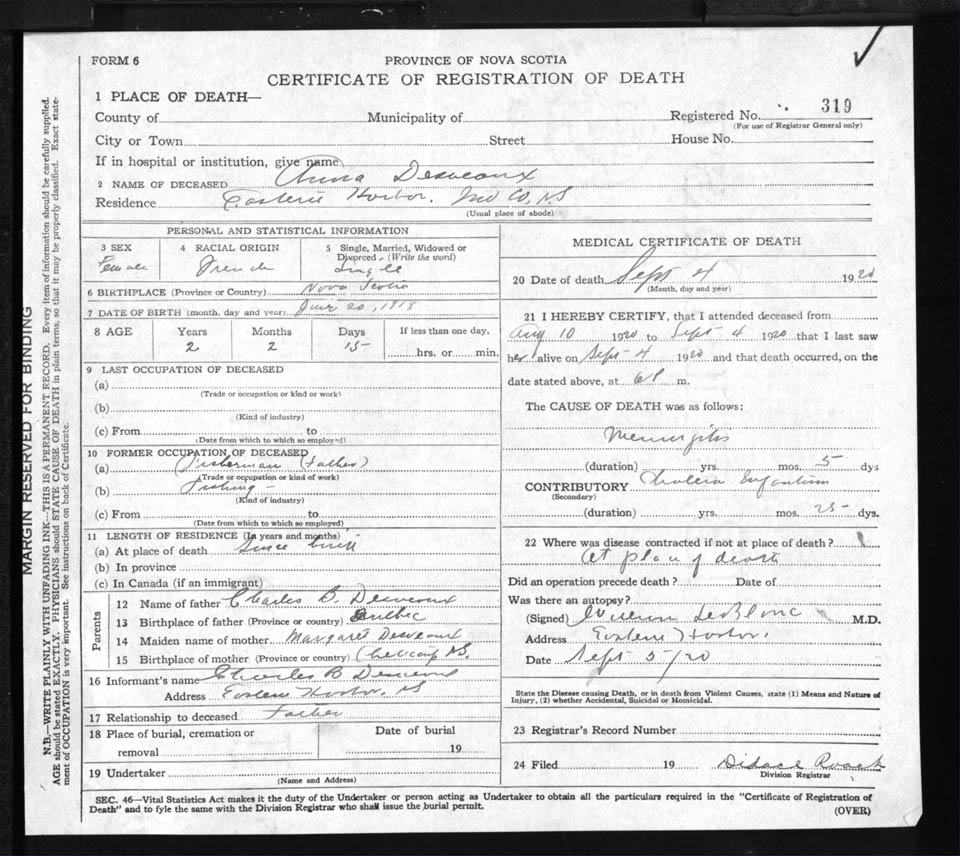 FORM 6
PROVINCE OF NOVA SCOTIA
CERTIFICATE OF REGISTRATION OF DEATH
1 PLACE OF DEATH—
County of Municipality of Registered No. 319
(For use of Registrar General only)
City or Town Street House No.
If in hospital or institution, give name
2 NAME OF DECEASED Anna Desveaux
Residence Eastern Harbor, Inv Co, N.S
(Usual place of abode)
PERSONAL AND STATISTICAL INFORMATION
3 SEX
Female
4 RACIAL ORIGIN
French
5 Single, Married, Widowed or Divorced. (Write the word)
Single
6 BIRTHPLACE (Province or Country) Nova Scotia
7 DATE OF BIRTH (month, day and year) June 20, 1918
8 AGE Years Months Days If less than one day,
2 2 15 hrs. or min.
9 LAST OCCUPATION OF DECEASED
(a)
(Trade or occupation or kind or work)
(b)
(Kind of industry)
(c) From to
(Date from which to which so employed)
10 FORMER OCCUPATION OF DECEASED
(a) Fisherman (Father)
(Trade or occupation or kind of work)
(b) Fishing
(Kind of industry)
(c) From to
(Date from which to which so employed)
11 LENGTH OF RESIDENCE (In years and months)
(a) At place of death Since birth
(b) In province
(c) In Canada (if an immigrant)
Parents
12 Name of father Charles B. Desveaux
13 Birthplace of father (Province or country) Quebec
14 Maiden name of mother Margaret Desveaux
15 Birthplace of mother (Province or country) Cheticamp N.S.
16 Informant's name Charles B Desveaux
Address Eastern Harbor, N S
17 Relationship to deceased Father
18 Place of burial, cremation or removal
Date of burial
19
19 Undertaker
(Name and Address)
MEDICAL CERTIFICATE OF DEATH
20 Date of death Sept 4 1920
(Month, day and year)
21 I HEREBY CERTIFY, that I attended deceased from
Aug 10 1920 to Sept 4 1920 that I last saw
her alive on Sept 4 1920 and that death occurred, on the
date stated above, at 6 P m.
The CAUSE OF DEATH was as follows:
Meningitis
(duration) yrs. mos. 5 dys
CONTRIBUTORY Cholera Infantum
(Secondary)
(duration) yrs. mos. 25 dys.
22 Where was disease contracted if not at place of death?
At place of death
Did an operation precede death? Date of
Was there an autopsy?
(Signed) LeBlanc M.D.
Address Eastern Harbor.
Date Sept 5/20
State the Disease causing Death, or in death from Violent Causes, state (1) Means and Nature of
Injury, (2) whether Accidental, Suicidal or Homicidal.
23 Registrar's Record Number
24 Filed 19
Division Registrar
SEC. 46—Vital Statistics Act makes it the duty of the Undertaker or person acting as Undertaker to obtain all the particulars required in the "Certificate of Registration of
Death" and to fyle the same with the Division Registrar who shall issue the burial permit.
(OVER)
MARGIN RESERVED FOR BINDING
N.B.—WRITE PLAINLY WITH UNFADING INK—THIS IS A PERMANENT RECORD. Every item of information should be carefully supplied.
AGE should be stated EXACTLY. PHYSICIANS should STATE CAUSE OF DEATH in plain terms, so that it may be properly classified. Exact state-
ment of OCCUPATION is very important. See instructions on back of Certificate.